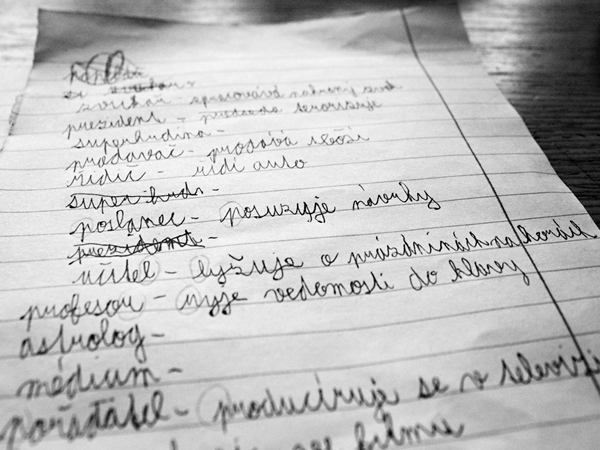 zvukař - zpracovává nahraný zvuk
prezident -
superhrdina -
prodavač - prodává zboží
řidič - řídí auto
superhrdi -
poslanec - posuzuje návrhy
prezident -
učitel - lyžuje o prázdninách na horách
profesor - ryje vědomosti do hlavy
astrolog -
médium -
pořadatel - producíruje se v televizi
ve filmu